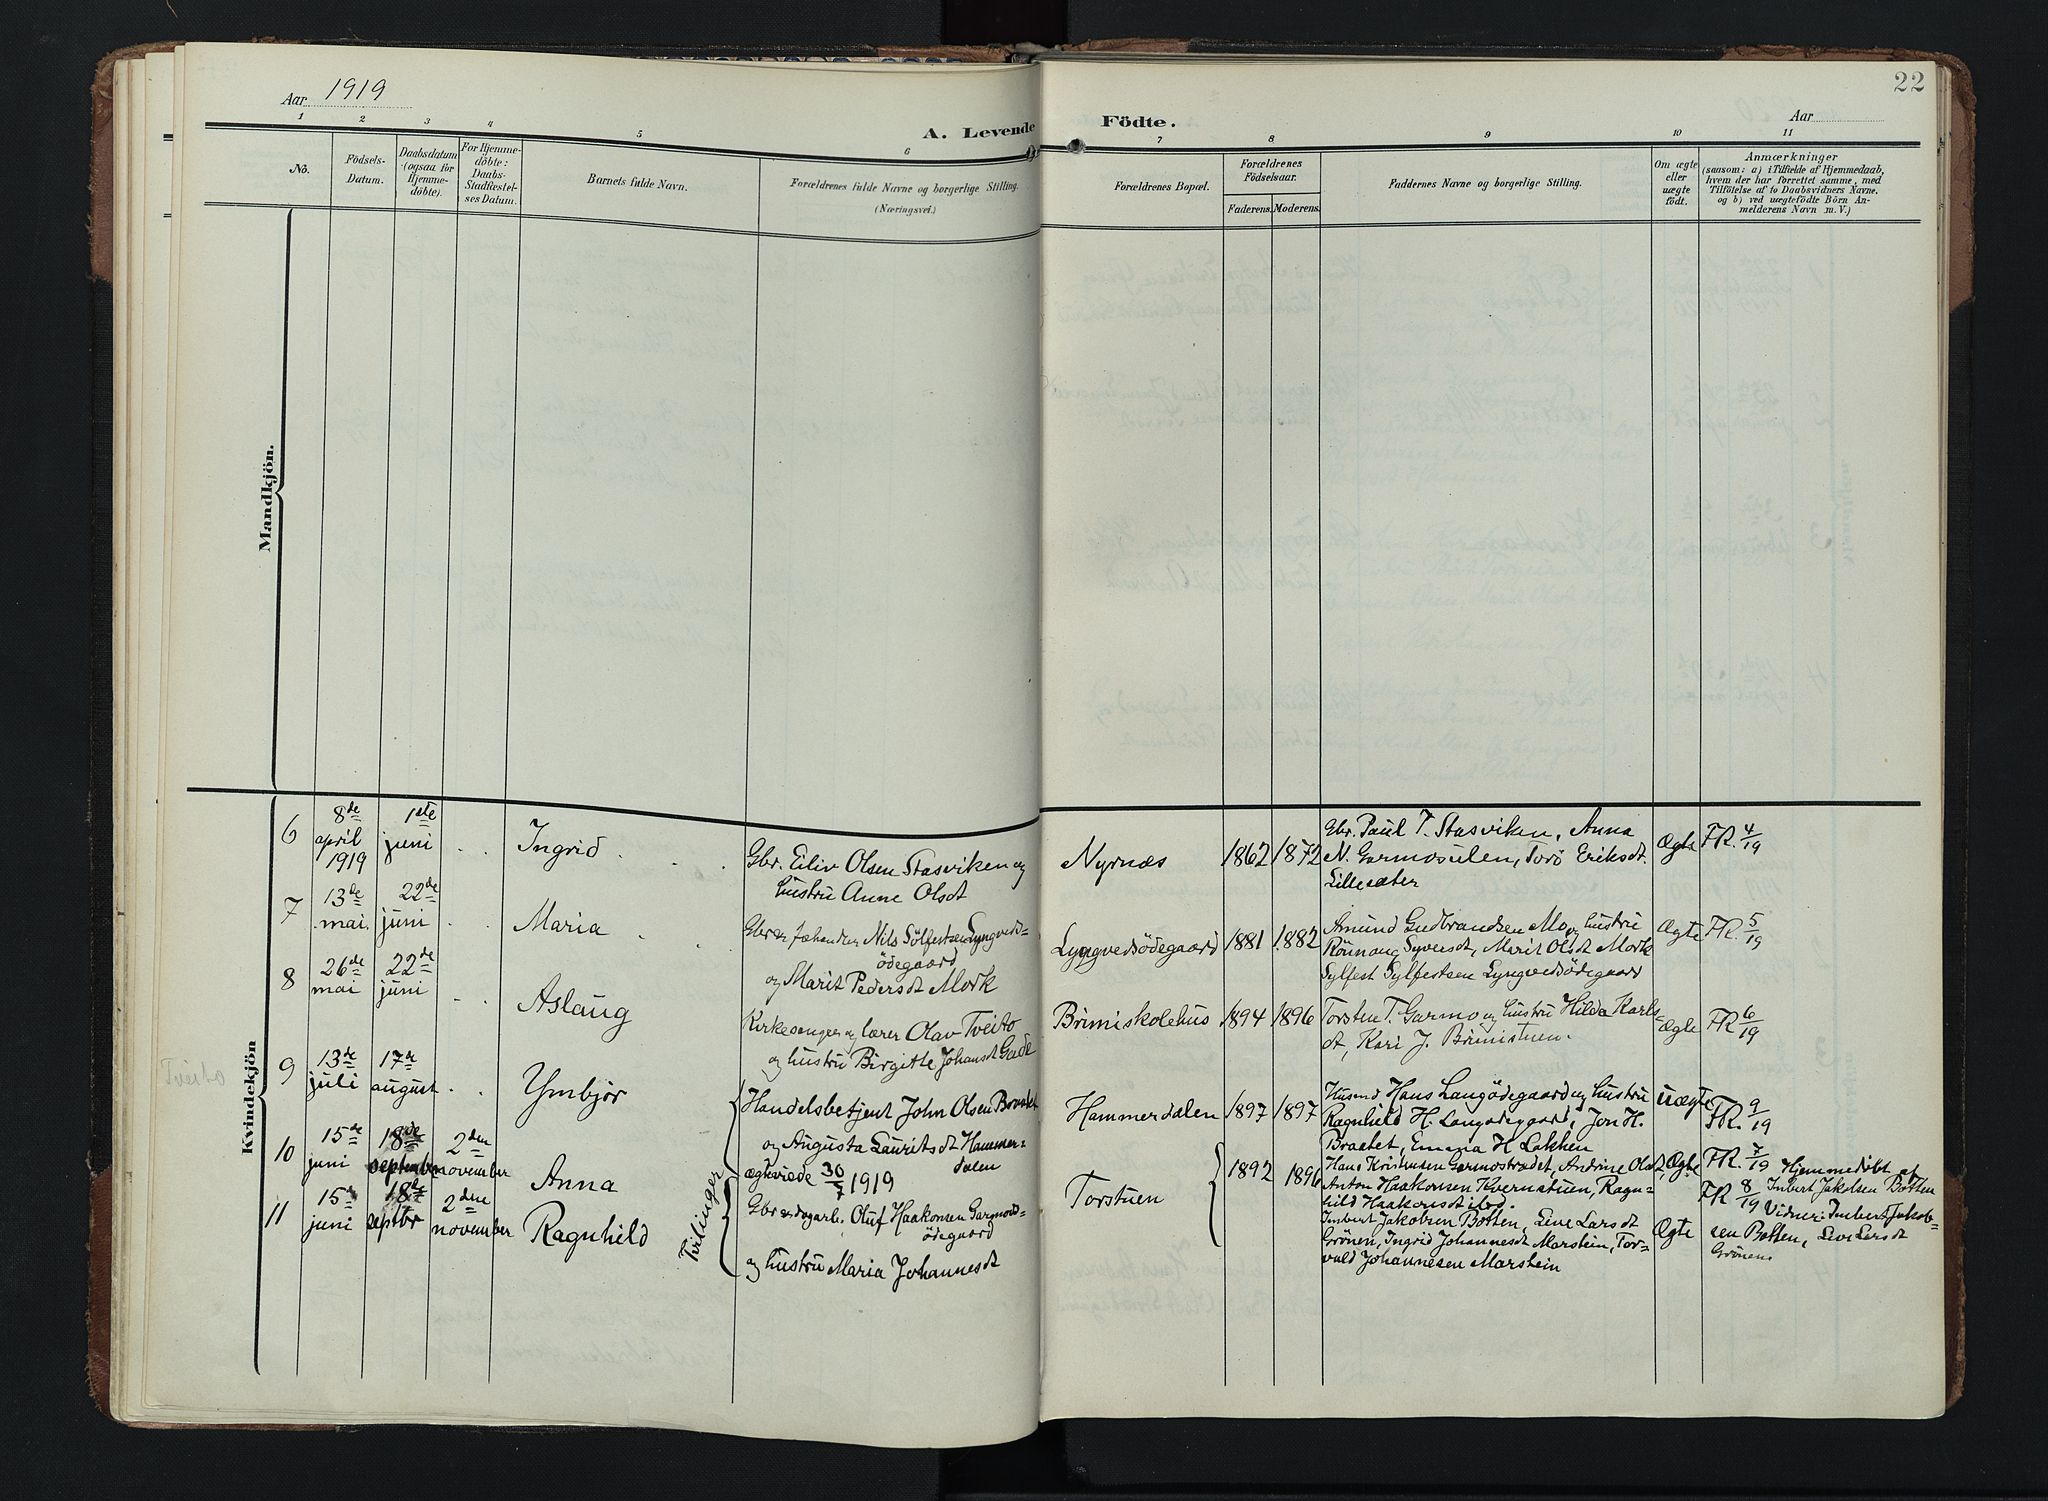 Aar 1919
22
A. Levende Födte.
Aar
1 2 3 4 5 6 7 8 9 10 11
No.
Födsels-
Datum.
Daabsdatum
(ogsaa for
Hjemme-
döbte).
For Hjemme-
döbte:
Daabs-
Stadfæstel-
ses Datum.
Barnets fulde Navn.
Forældrenes fulde Navne og borgerlige Stilling.
(Næringsvei.)
Forældrenes Bopæl.
Forældrenes
Födselsaar.
Faderens.
Moderens.
Faddernes Navne og borgerlige Stilling.
Om ægte
eller
uægte
födt.
Anmærkninger
(saasom: a) i Tilfælde af Hjemmedaab,
hvem der har forrettet samme, med
Tilföielse af to Daabsvidners Navne,
og b) ved uægtefödte Börn An-
melderens Navn m. V.)
Mandkjön.
Kvindekjön
6
8de
april
1919
1ste
juni
Ingrid
Gbr. Eiliv Olsen Stasviken og
hustru Anne Olsdt
Nyrnæs
1862
1872
Gbr. Paul T. Stasviken, Anna
N. Garmosulen, Torö Eriksdt.
Lillesæter
Ægte
FR. 4/19
7
13de
mai.
22de
juni
Maria
Nils Sölfestsen Lyngveds-
ödegaard
og Marit Pedersdt Mork
Lyngvedsödegaard
1881
1882
Amund Gudbrandsen Mo og hustru
Rönnaug Syversdt, Marit Olsdt Mork
Sylfest Sylfestsen Lyngvedsödegaard
Ægte
FR. 5/19
8
26de
mai
22de
juni
Aslaug
Kirkesanger og lærer Olav Tveito
og hustru Birgitte Johansdt Gade
Brimiskolehus
1894
1896
Torsten T. Garmo og hustru Hilda Karls-
dt, Kari J. Brimistuen.
Ægte
FR 6/19
Tveito
9
13de
juli
17de
august
Ymbjør
Handelsbetjent John Olsen Braatet
og Augusta Lauritsdt Hammer-
dalen
ægteviede 30/7 1919
Hammerdalen
1897
1897
Husmd Hans Langödegaard og hustru
Ragnhild H. Langödegaard, Jon H.
Braatet, Emma H. Løkken
uægte
FR. 9/19
10
15de
juni
18de
september
2den
november
Anna
Tvilinger
Gbr. og dagarb. Oluf Haakonsen Garmods-
ödegaard
og hustru Maria Johannesdt
Torstuen
1892
1896
Hans Kristensen Garmostrædet, Andrine Olsdt,
Anton Haakonsen Kvernstuen, Ragn-
hild Haakonsdt ibid.
Ægte
FR. 7/19
Hjemmedöbt af
Imbert Jakobsen Botten
Vidner: Imbert Jakob-
sen Botten, Live Larsdt
Grönen
11
15de
juni
18de
septbr
2den
november
Ragnhild
Imbert Jakobsen Botten, Live Larsdt
Grönen, Ingrid Johannesdt Marstein, Tor-
vald Johannesen Marstein
Ægte
FR 8/19